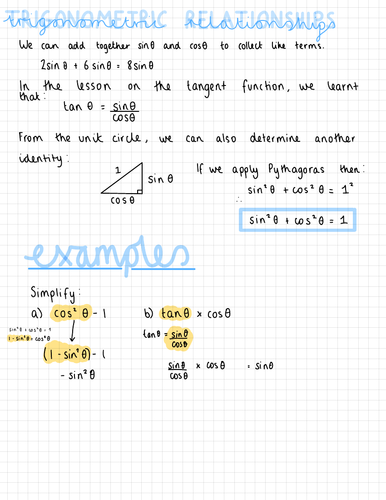 TRIGONOMETRIC RELATIONSHIPS
trigonometric relationships
We can add together sinθ and cosθ to collect like terms.
2sin θ + 6 sin θ = 8sin θ
In the lesson on the tangent function, we learnt
that:
tan θ = sinθ
cosθ
From the unit circle, we can also determine another
identity:
1
sin θ
cos θ
If we apply Pythagoras then:
sin² θ + cos² θ = 1²
∴
sin² θ + cos² θ = 1
examples
Simplify:
a) cos² θ - 1
sin²θ + cos²θ = 1
1 - sin²θ = cos²θ
(1 - sin²θ) - 1
- sin²θ
b) tanθ × cosθ
tanθ = sinθ
cosθ
sinθ × cosθ = sinθ
cosθ